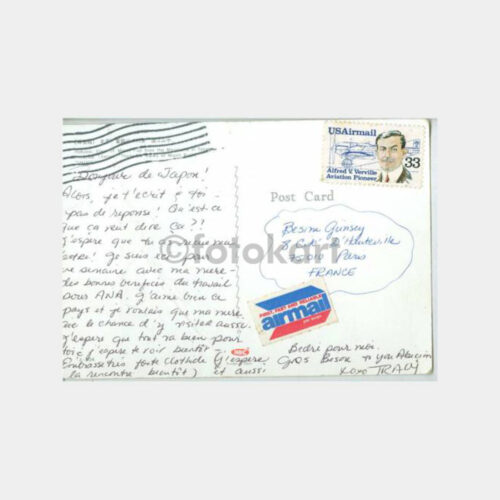 Bonjour de Japon!
Alors, je t'ecrit à toi -
pas de réponse! Qu'est-ce
que ça veut dire ça?!
J'espère que tu
Je suis ici pour
une semaine avec ma mère -
des bons benefices du travail
pour ANA. J'aime bien ce
pays et je voulais que ma mère
le chance d'y visiter aussi.
J'espère que tout va bien pour
toi - j'espère te voir bientôt -
Embrasse très forte Clothilde (j'espère
la rencontre bientôt) et aussi
Bedri pour moi.
Gros Bisou
xoxo TRACY
USAirmail
33
Alfred V. Verville
Aviation Pioneer
Post Card
Besim Gunsey
8 Cité D'Hauteville
75010 Paris
FRANCE
FIRST, FAST AND RELIABLE
airmail
par avion
NBC
©fotokart